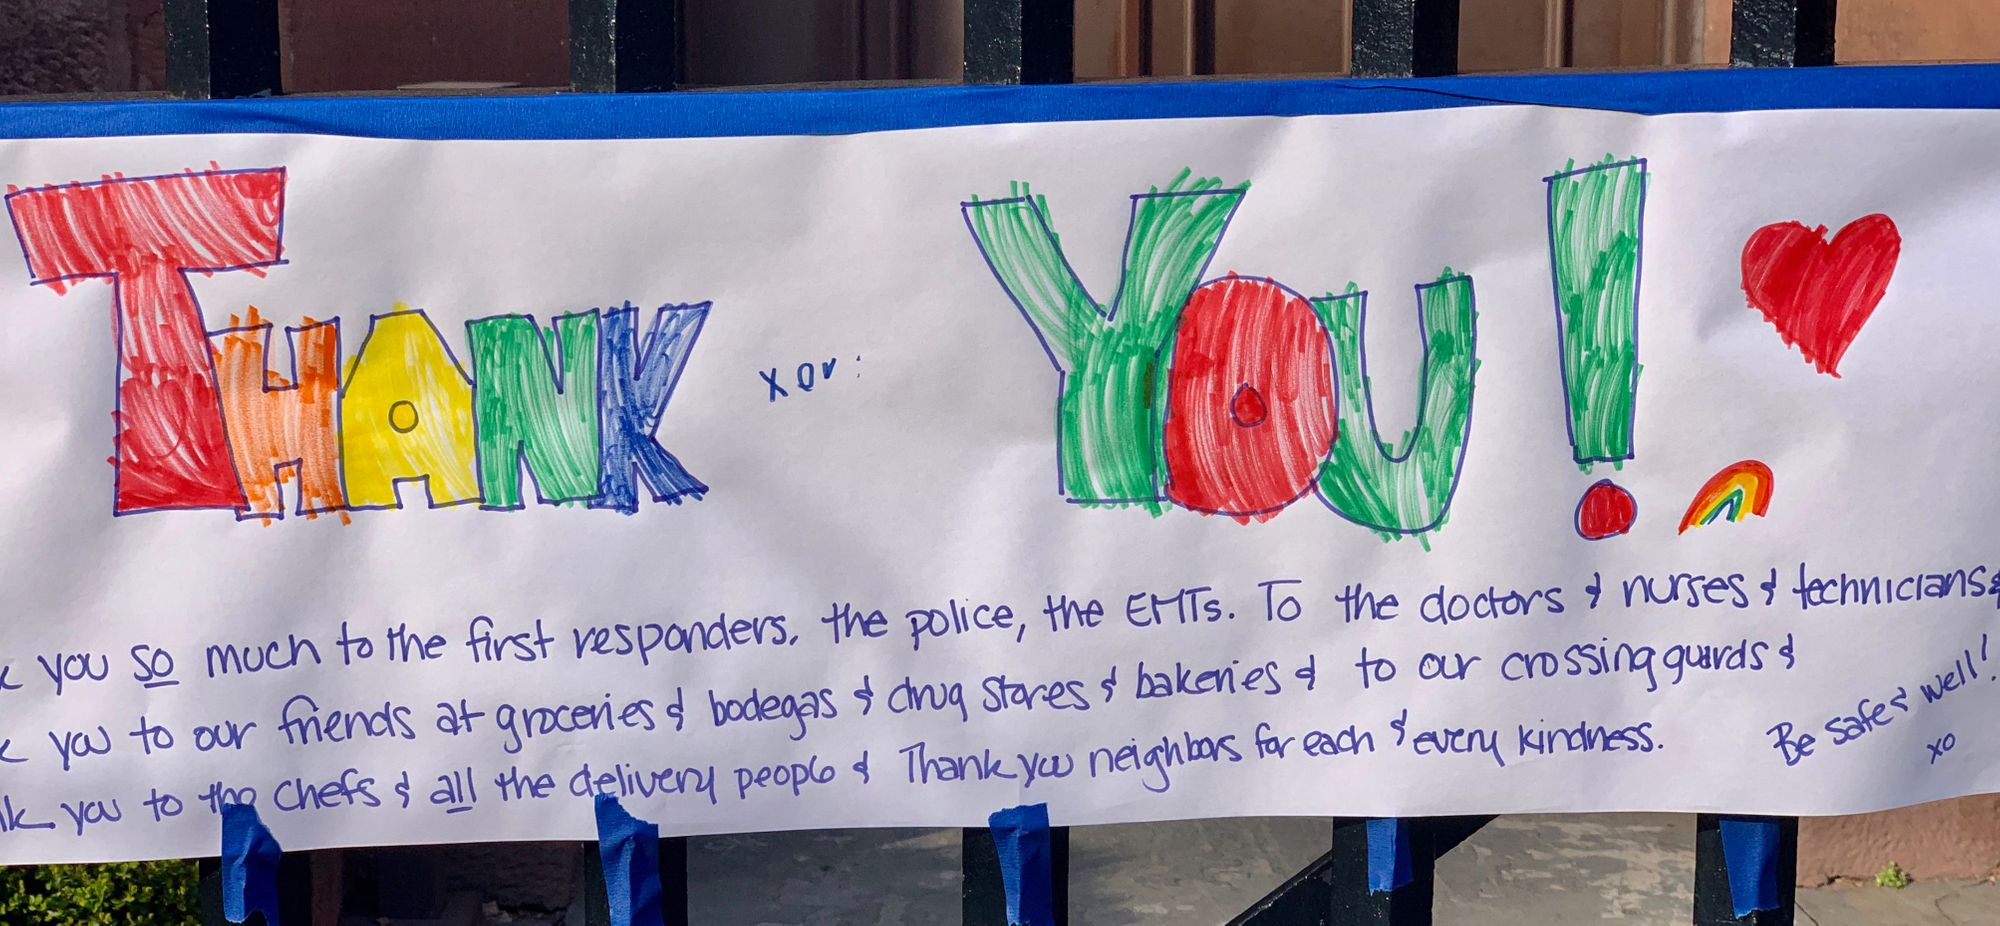 THANK YOU!
you so much to the first responders, the police, the EMTs. To the doctors & nurses & technicians &
you to our friends at groceries & bodegas & drug stores & bakeries & to our crossing guards &
you to the chefs & all the delivery people & Thank you neighbors for each & every kindness.
Be safe & well!
xo